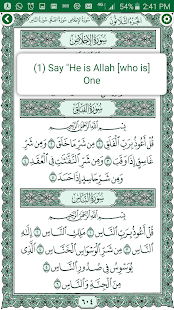 2:41 PM
سُورَةُ الإِخْلَاصِ
(1) Say "He is Allah [who is]
One
سُورَةُ الْفَلَقِ
بِسْمِ اللَّهِ الرَّحْمَٰنِ الرَّحِيمِ
قُلْ أَعُوذُ بِرَبِّ الْفَلَقِ ۝ مِن شَرِّ مَا خَلَقَ ۝ وَمِن شَرِّ
غَاسِقٍ إِذَا وَقَبَ ۝ وَمِن شَرِّ النَّفَّاثَاتِ فِي الْعُقَدِ ۝
وَمِن شَرِّ حَاسِدٍ إِذَا حَسَدَ ۝
سُورَةُ النَّاسِ
بِسْمِ اللَّهِ الرَّحْمَٰنِ الرَّحِيمِ
قُلْ أَعُوذُ بِرَبِّ النَّاسِ ۝ مَلِكِ النَّاسِ ۝ إِلَٰهِ
النَّاسِ ۝ مِن شَرِّ الْوَسْوَاسِ الْخَنَّاسِ ۝ الَّذِي
يُوَسْوِسُ فِي صُدُورِ النَّاسِ ۝
مِنَ الْجِنَّةِ وَالنَّاسِ ۝
٦٠٤